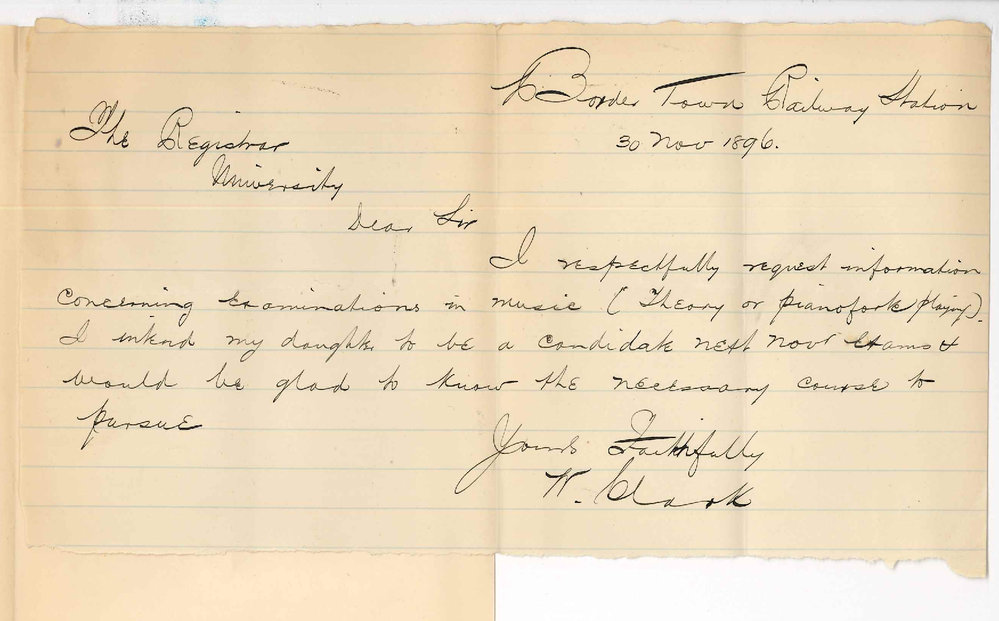 Border Town Railway Station
30 Nov 1896.
The Registrar
University
Dear Sir
I respectfully request information
concerning examinations in music (Theory or pianoforte playing).
I intend my daughter to be a candidate next Novr Exams &
would be glad to know the necessary course to
pursue
Yours Faithfully
W. Clark